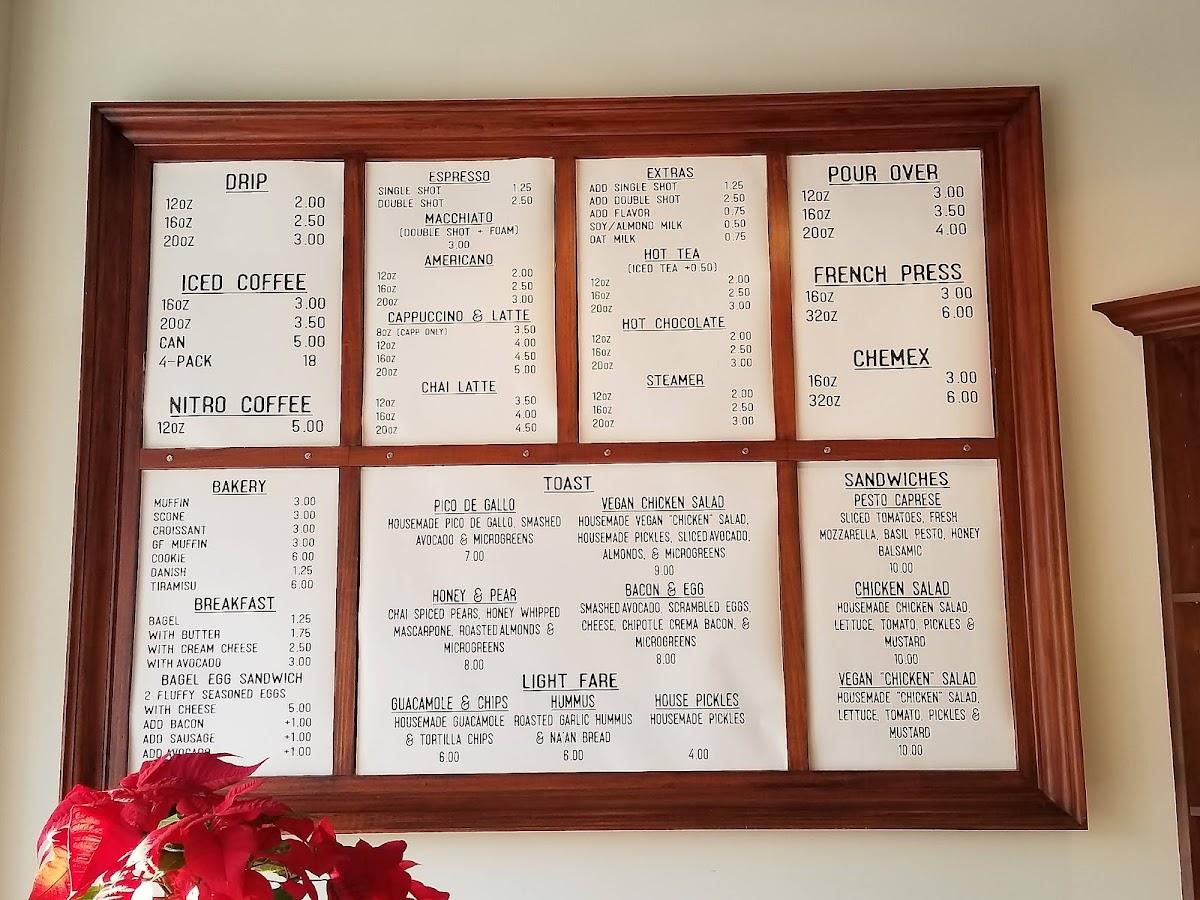 DRIP
12oz 2.00
16oz 2.50
20oz 3.00
ICED COFFEE
16oz 3.00
20oz 3.50
CAN 5.00
4-PACK 18
NITRO COFFEE
12oz 5.00
ESPRESSO
SINGLE SHOT 1.25
DOUBLE SHOT 2.50
MACCHIATO
(DOUBLE SHOT + FOAM)
3.00
AMERICANO
12oz 2.00
16oz 2.50
20oz 3.00
CAPPUCCINO & LATTE
8oz (CAPP ONLY) 3.50
12oz 4.00
16oz 4.50
20oz 5.00
CHAI LATTE
12oz 3.50
16oz 4.00
20oz 4.50
EXTRAS
ADD SINGLE SHOT 1.25
ADD DOUBLE SHOT 2.50
ADD FLAVOR 0.75
SOY/ALMOND MILK 0.50
OAT MILK 0.75
HOT TEA
(ICED TEA +0.50)
12oz 2.00
16oz 2.50
20oz 3.00
HOT CHOCOLATE
12oz 2.00
16oz 2.50
20oz 3.00
STEAMER
12oz 2.00
16oz 2.50
20oz 3.00
POUR OVER
12oz 3.00
16oz 3.50
20oz 4.00
FRENCH PRESS
16oz 3.00
32oz 6.00
CHEMEX
16oz 3.00
32oz 6.00
BAKERY
MUFFIN 3.00
SCONE 3.00
CROISSANT 3.00
GF MUFFIN 3.00
COOKIE 6.00
DANISH 1.25
TIRAMISU 6.00
BREAKFAST
BAGEL 1.25
WITH BUTTER 1.75
WITH CREAM CHEESE 2.50
WITH AVOCADO 3.00
BAGEL EGG SANDWICH
2 FLUFFY SEASONED EGGS
WITH CHEESE 5.00
ADD BACON +1.00
ADD SAUSAGE +1.00
ADD AVOCADO +1.00
TOAST
PICO DE GALLO
HOUSEMADE PICO DE GALLO, SMASHED
AVOCADO & MICROGREENS
7.00
VEGAN CHICKEN SALAD
HOUSEMADE VEGAN "CHICKEN" SALAD,
HOUSEMADE PICKLES, SLICED AVOCADO,
ALMONDS, & MICROGREENS
9.00
HONEY & PEAR
CHAI SPICED PEARS, HONEY WHIPPED
MASCARPONE, ROASTED ALMONDS &
MICROGREENS
8.00
BACON & EGG
SMASHED AVOCADO, SCRAMBLED EGGS,
CHEESE, CHIPOTLE CREMA BACON, &
MICROGREENS
8.00
LIGHT FARE
GUACAMOLE & CHIPS
HOUSEMADE GUACAMOLE
& TORTILLA CHIPS
6.00
HUMMUS
ROASTED GARLIC HUMMUS
& NA'AN BREAD
6.00
HOUSE PICKLES
HOUSEMADE PICKLES
4.00
SANDWICHES
PESTO CAPRESE
SLICED TOMATOES, FRESH
MOZZARELLA, BASIL PESTO, HONEY
BALSAMIC
10.00
CHICKEN SALAD
HOUSEMADE CHICKEN SALAD,
LETTUCE, TOMATO, PICKLES &
MUSTARD
10.00
VEGAN "CHICKEN" SALAD
HOUSEMADE "CHICKEN" SALAD,
LETTUCE, TOMATO, PICKLES &
MUSTARD
10.00